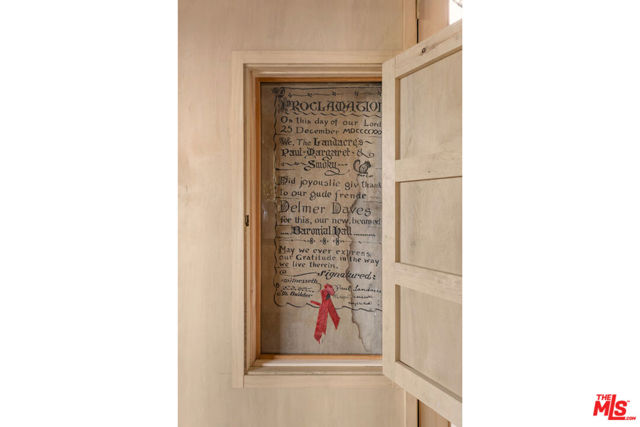 PROCLAMATION
On this day of our Lord
25 December MDCCCCXX
We, The Landacres
Paul-Margaret &
Smoky
Did joyouslie giv thank
to our gude frende
Delmer Daves
for this, our new, beamed
Baronial Hall
May we ever express
our Gratitude in the way
we live therein.
Signatured:
witnesseth
Builder
Paul Landacre
THE
MLS
.COM